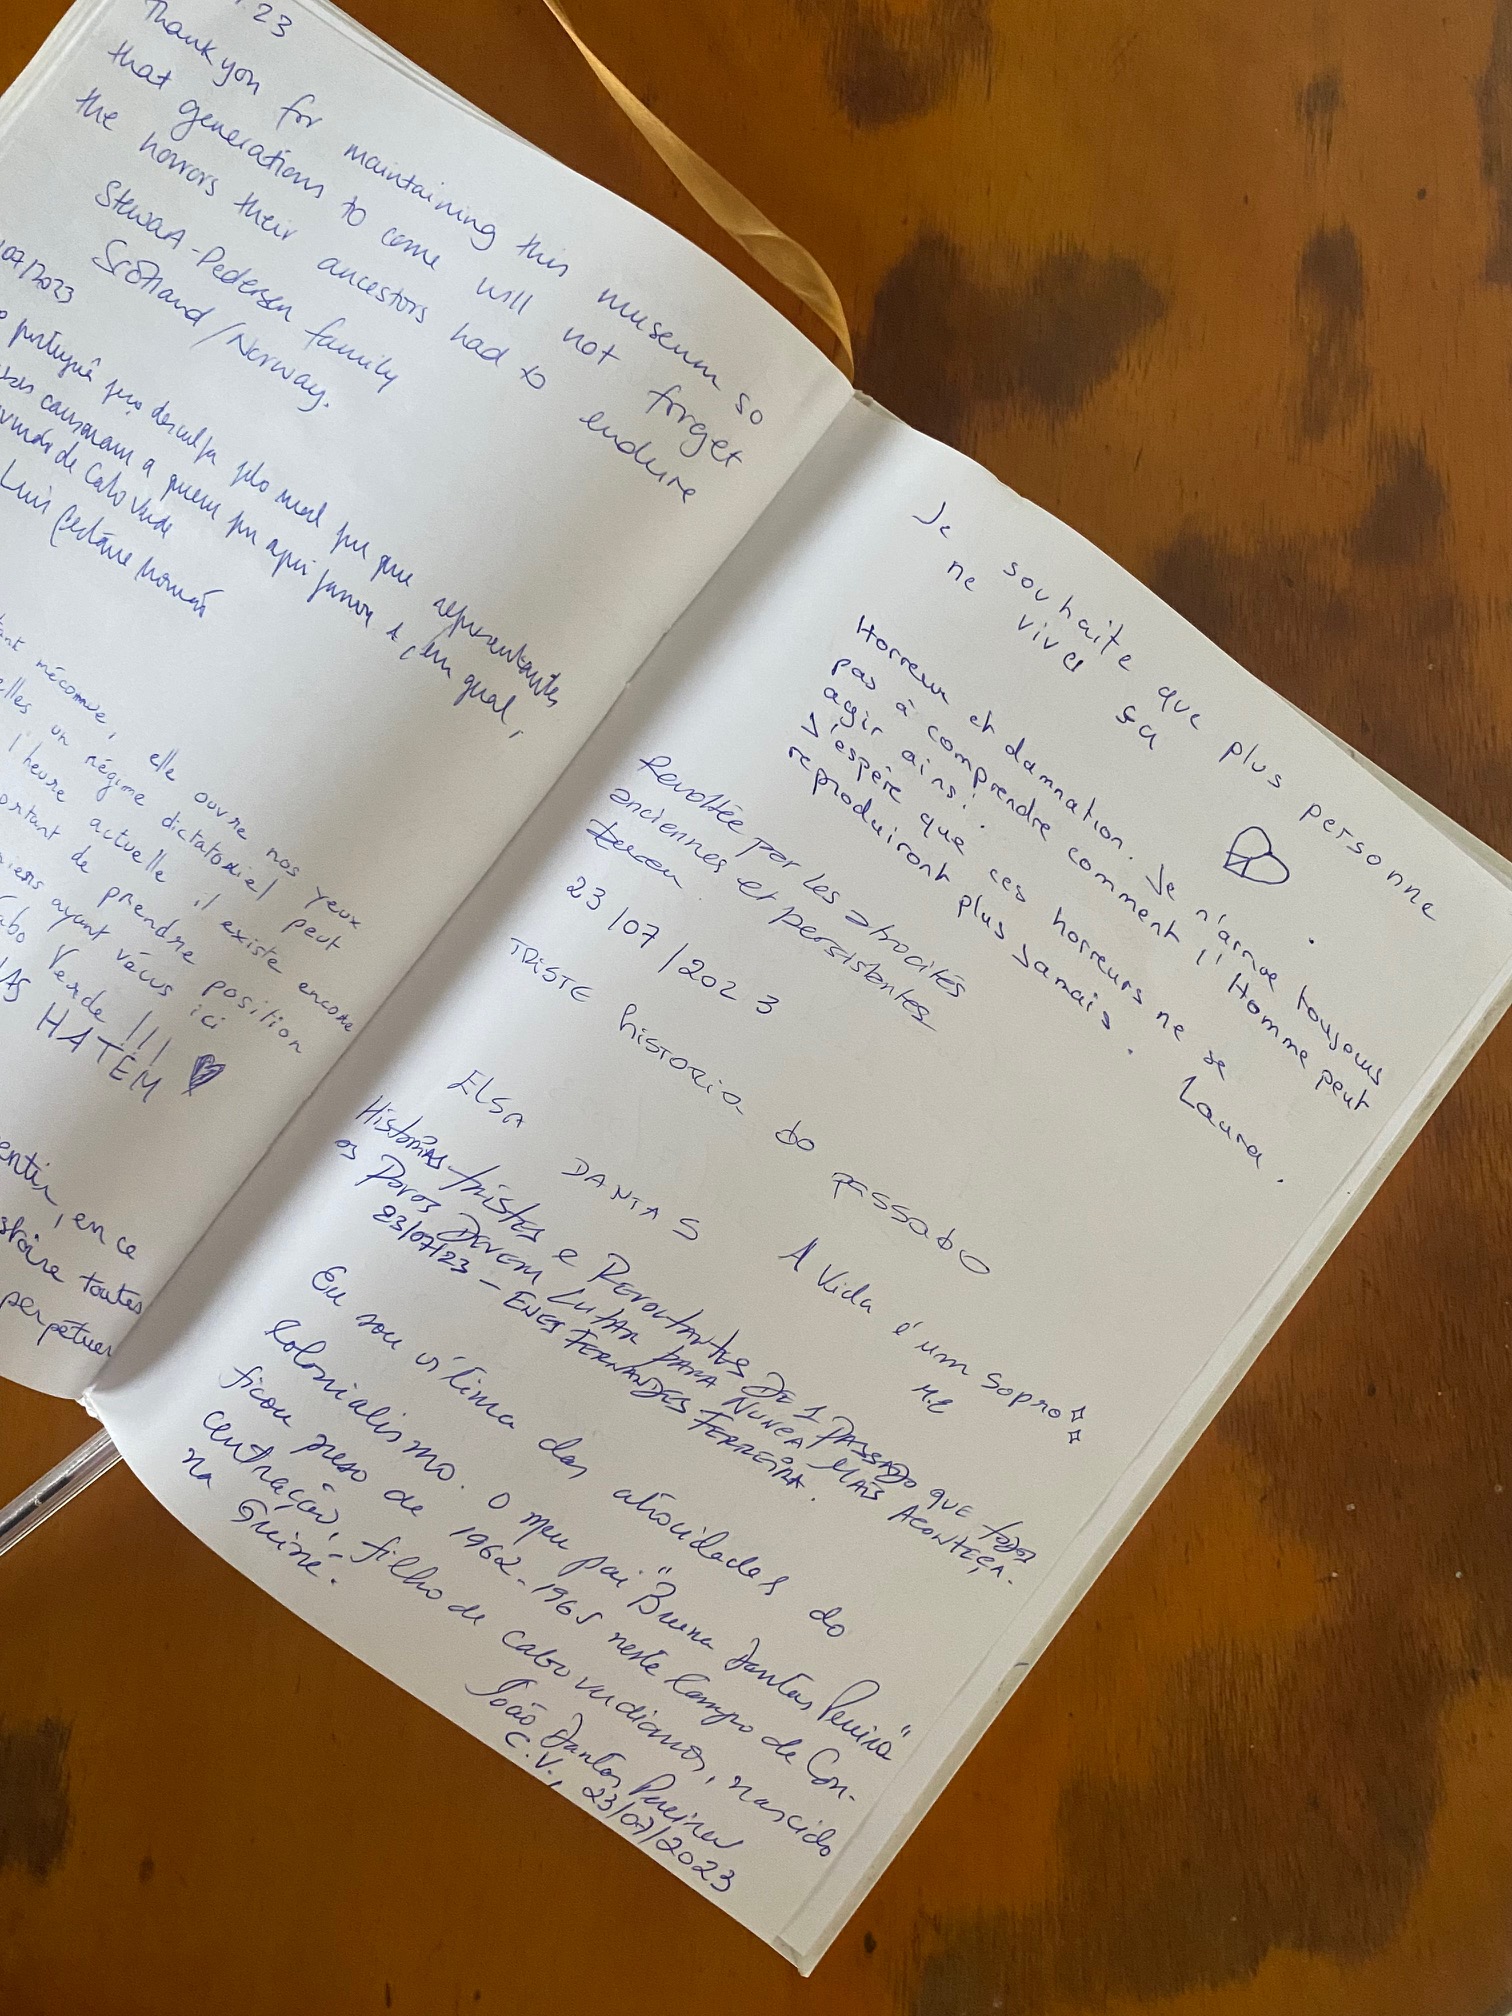 .23
Thank you for maintaining this museum so
that generations to come will not forget
the horrors their ancestors had to endure
Stewart-Pedersen family
Scotland/Norway.
07/2023
portuguê peço desculpa pelo mal que
representantes
causaram a quem por aqui passou e, em geral,
de Cabo Verde
Luís
tant méconnue, elle ouvre nos yeux
elles un régime dictatoriel peut
l'heure actuelle il existe encore
portant de prendre position
niers ayant vécus ici
Cabo Verde !!!
HATEM
entir, en ce
stoire toutes
perpétuer
Je souhaite que plus personne
ne vive sa
Horreur et damnation. Je n'arrive toujours
pas à comprendre comment l'Homme peut
agir ainsi.
J'espère que ces horreurs ne se
reproduiront plus jamais.
Laura.
Revoltée par les atrocités
anciennes et persistentes
23/07/2023
TRISTE historia do passado
ELSA DANTAS
A vida é um sopro
M.C
Histórias tristes e REVOLTANTES DE 1 PASSADO QUE todos
os Povos DEVEM LUTAR PARA NUNCA MAIS ACONTEÇA.
23/07/23 - ENES FERNANDES FERREIRA.
Eu sou vítima das atrocidades do
Colonialismo. O meu pai "Buena Dantas Pereira"
ficou preso de 1962-1965 neste Campo de Con-
centração, filho de caboverdianos, nascido
na Guiné.
João Dantas Pereira
C.V., 23/07/2023